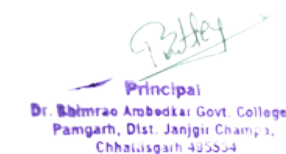 Principal
Dr. Bhimrao Ambedkar Govt. College
Pamgarh, Dist. Janjgir Champa,
Chhattisgarh 495554